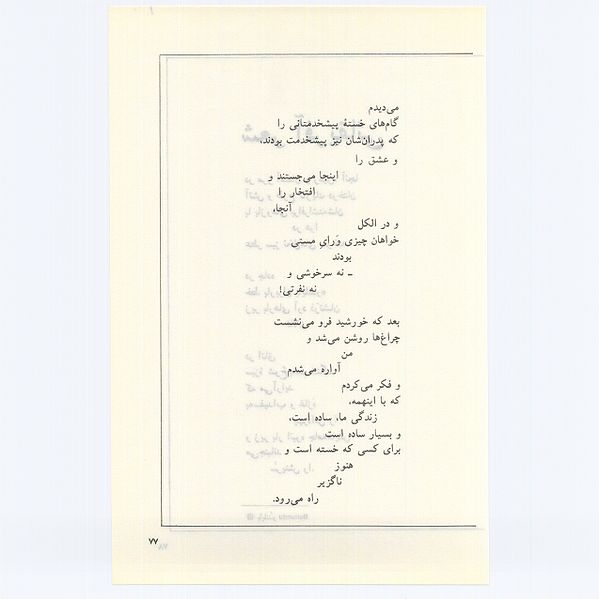 می‌دیدم
گام‌های خستهٔ پیشخدمتانی را
که پدران‌شان نیز پیشخدمت بودند،
و عشق را
اینجا می‌جستند و
افتخار را
آنجا،
و در الکل
خواهان چیزی وَرایِ مستی
بودند
ــ نه سرخوشی و
نه نفرتی!
بعد که خورشید فرو می‌نشست
چراغ‌ها روشن می‌شد و
من
آواره می‌شدم
و فکر می‌کردم
که با اینهمه،
زندگی ما، ساده است،
و بسیار ساده است
برای کسی که خسته است و
هنوز
ناگزیر
راه می‌رود.
۷۷